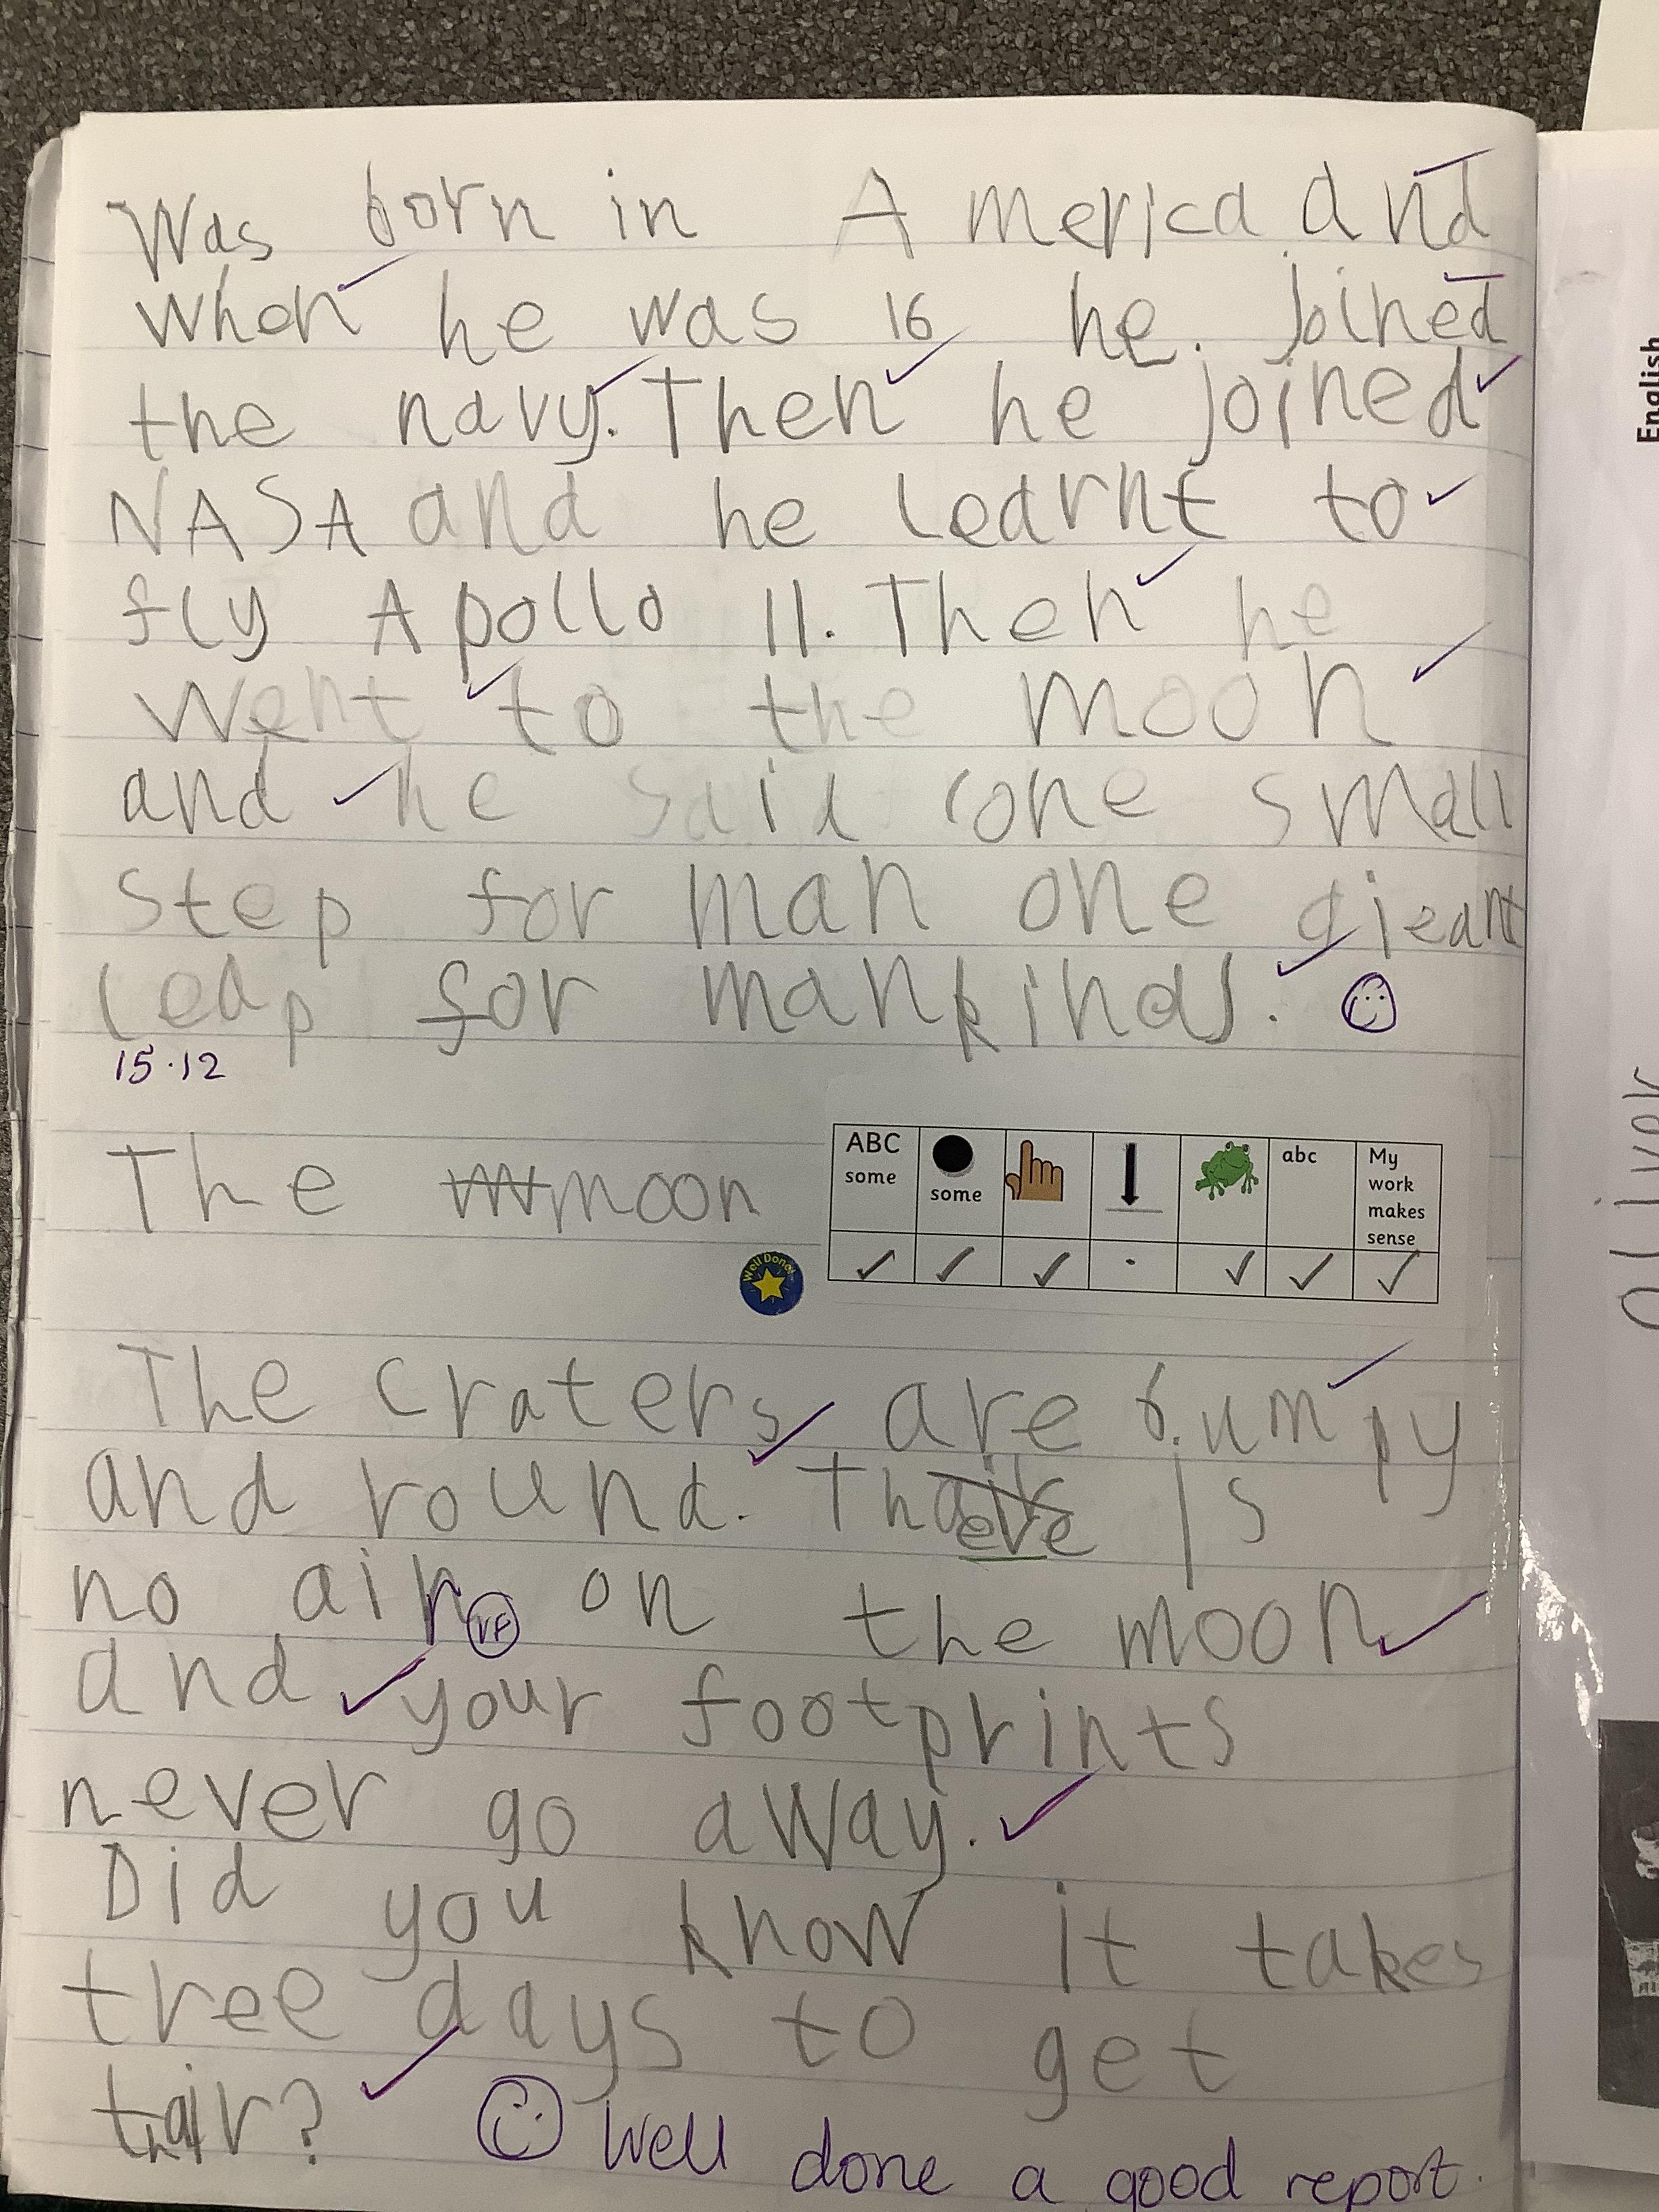 Was born in America and
when he was 16 he. joined
the navy. Then he joined
NASA and he learnt to
fly Apollo 11. Then he
went to the moon
and he said (one small
step for man one gieant
leap for mankind). 
15.12
The moon
ABC some
some
abc
My work makes sense
Well Done!
The craters are bumpy
and round. There is
no air on the moon
VF
and your footprints
never go away.
Did you know it takes
tree days to get
thair?
Well done a good report.
English
Oliver